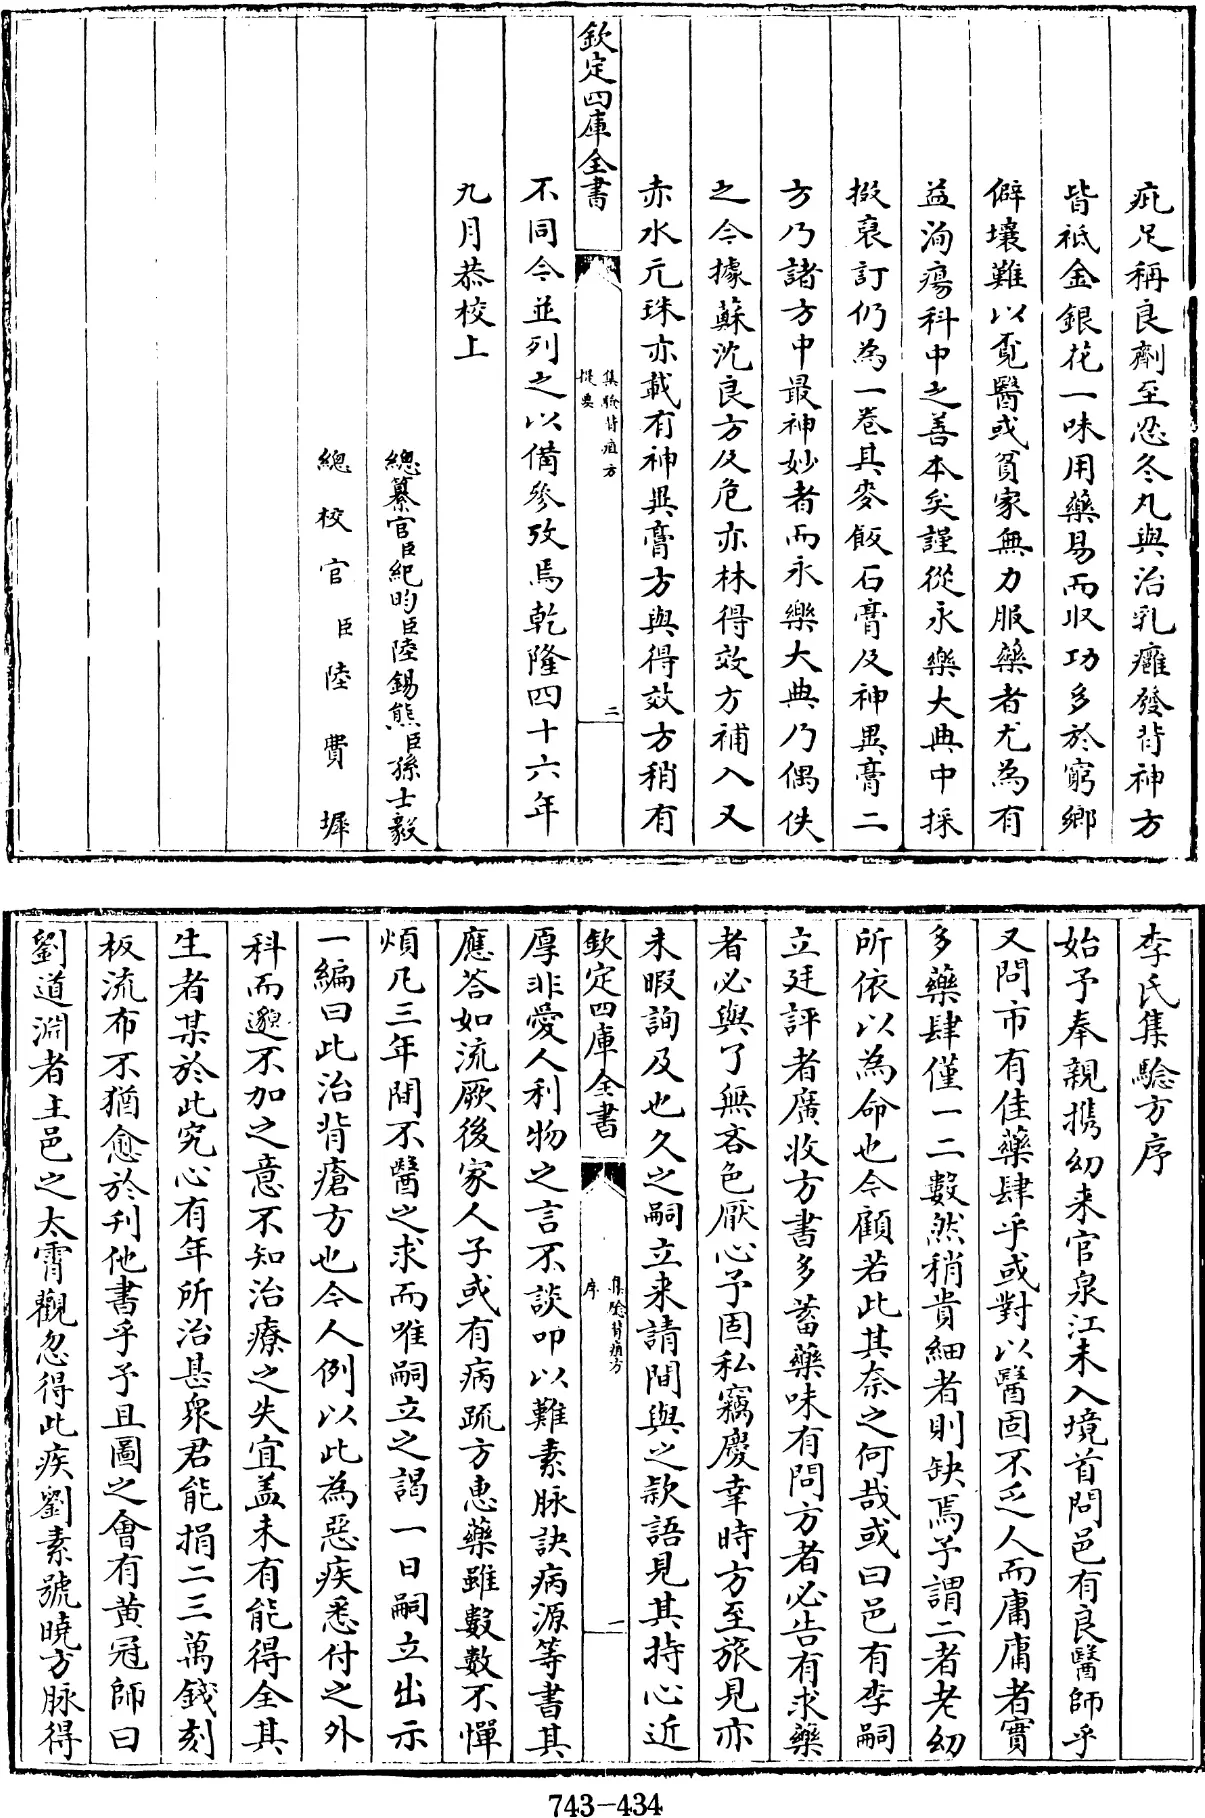 疵足稱良劑至忍冬丸與治乳癰發背神方
皆祗金銀花一味用藥易而収功多於窮鄉
僻壤難以覔醫或貧家無力服藥者尤為有
益洵瘍科中之善本矣謹從永樂大典中採
掇裒訂仍為一卷其麥飯石膏及神異膏二
方乃諸方中最神妙者而永樂大典乃偶佚
之今據蘇沈良方及危亦林得效方補入又
赤水元珠亦載有神異膏方與得效方稍有
欽定四庫全書
集驗背疽方
提要
二
不同今並列之以備參攷焉乾隆四十六年
九月恭校上
總纂官臣紀昀臣陸錫熊臣孫士毅
總校官臣陸費墀
李氏集驗方序
始予奉親携幼来官泉江未入境首問邑有良醫師乎
又問市有佳藥肆乎或對以醫固不乏人而庸庸者實
多藥肆僅一二數然稍貴細者則缺焉予謂二者老幼
所依以為命也今顧若此其奈之何哉或曰邑有李嗣
立廷評者廣收方書多蓄藥味有問方者必告有求藥
者必與了無吝色厭心予固私竊慶幸時方至旅見亦
未暇詢及也久之嗣立来請間與之款語見其持心近
欽定四庫全書
集驗背疽方
序
一
厚非愛人利物之言不談叩以難素脉訣病源等書其
應答如流厥後家人子或有病䟽方惠藥雖數數不憚
煩凡三年間不醫之求而唯嗣立之謁一日嗣立出示
一編曰此治背瘡方也今人例以此為惡疾悉付之外
科而邈不加之意不知治療之失宜盖未有能得全其
生者某於此究心有年所治甚衆君能捐二三萬錢刻
板流布不猶愈於刊他書乎予且圖之會有黄冠師曰
劉道淵者主邑之太霄觀忽得此疾劉素號曉方脉得
743-434